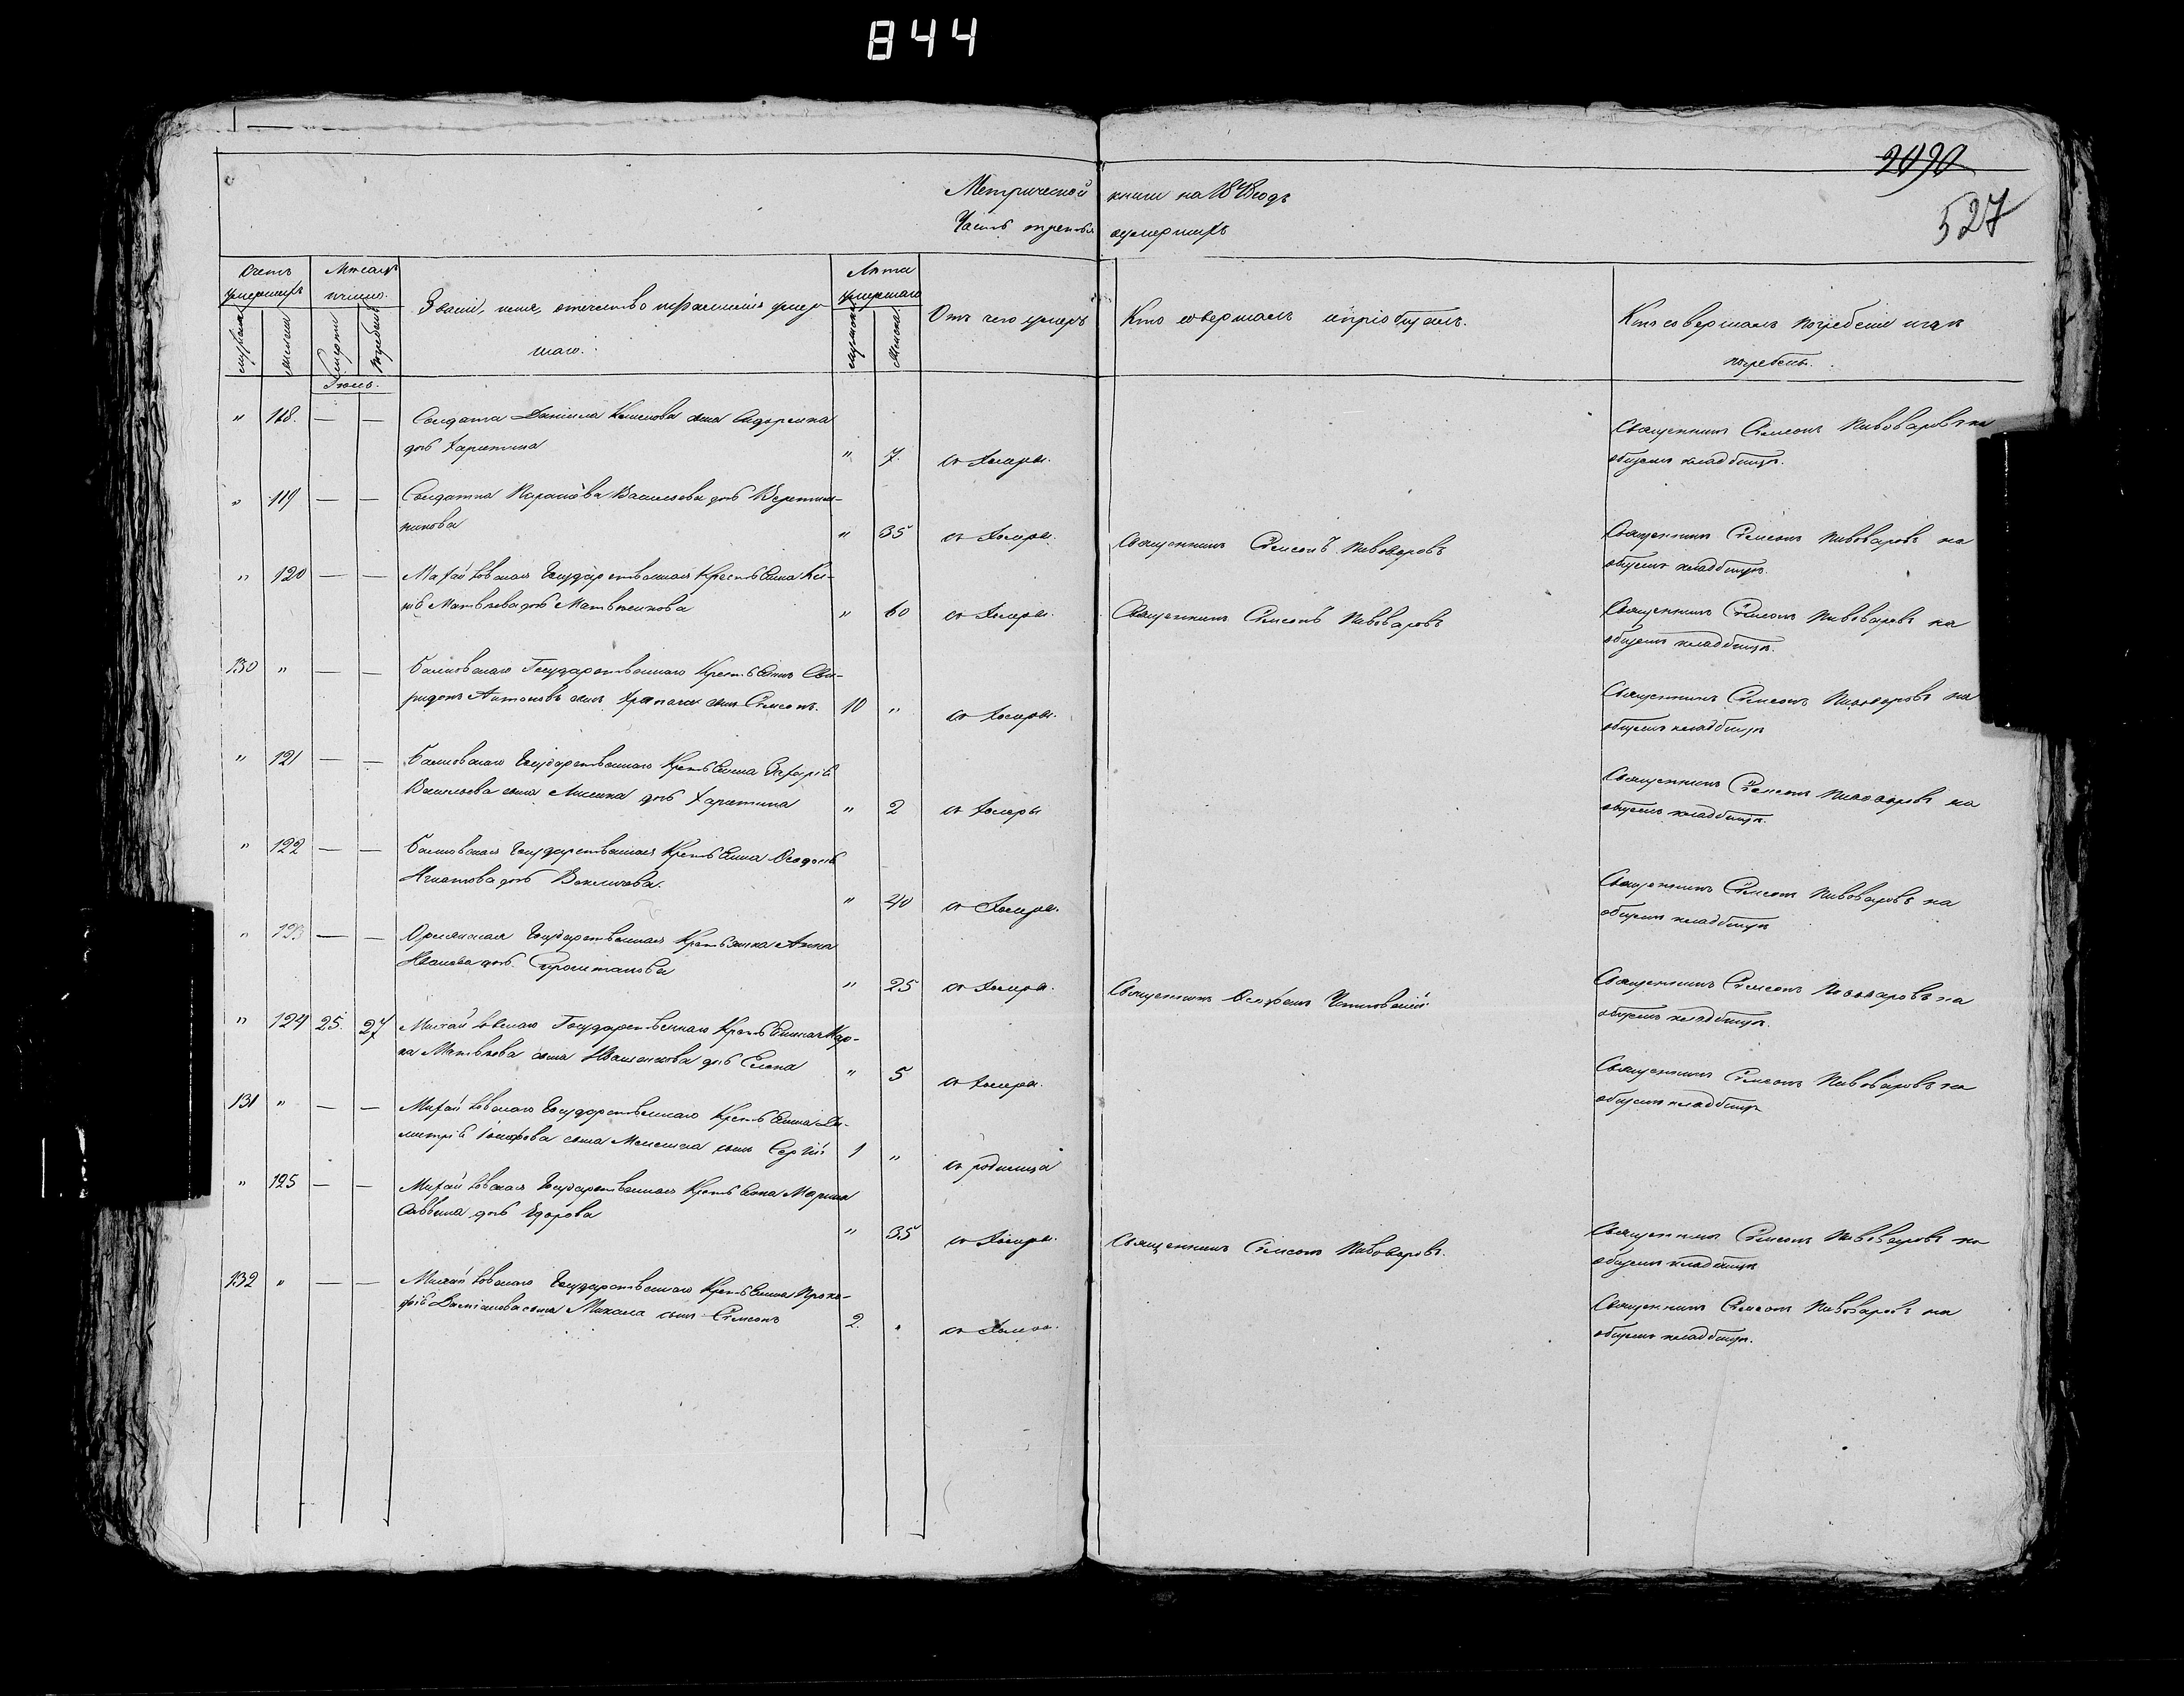 844
2090
527
Метрической книги на 1848 годъ
Часть третья о умершихъ
Счетъ умершихъ
мужска
женска
Мѣсяцъ и число.
Смерти
Погребен
Званіе, имя, отечество и фамилія умер
шаго.
Лѣта умершаго
мужска
женска
Отъ чего умеръ
Кто совершалъ и пріобщалъ.
Кто совершалъ погребеніе и гдѣ
погребены.
Іюль.
" 118. — — Солдата Даніила сына Сидоренка
дочь Харитина " 7. от Холеры. Священникъ Симеонъ Пивоваровъ на
общемъ кладбищѣ.
" 119 — — Солдатка Васильева дочь
никова " 35 от Холеры. Священникъ Симеонъ Пивоваровъ Священникъ Симеонъ Пивоваровъ на
общемъ кладбищѣ.
" 120 — — Государственная Крестьянка
Матвѣева дочь Матвѣенкова " 60 от Холеры. Священникъ Симеонъ Пивоваровъ Священникъ Симеонъ Пивоваровъ на
общемъ кладбищѣ.
130 " — — Государственнаго Крестьянина Сви-
ридона Антонова сына сынъ Симеонъ. 10 " от Холеры. Священникъ Симеонъ Пивоваровъ на
общемъ кладбищѣ
" 121 — — Государственнаго Крестьянина Захарія
Васильева сына дочь Харитина " 2 от Холеры Священникъ Симеонъ Пивоваровъ на
общемъ кладбищѣ.
" 122 — — Государственная Крестьянка Ѳеодосія
Игнатова дочь " 40 от Холеры. Священникъ Симеонъ Пивоваровъ на
общемъ кладбищѣ
" 123 — — Государственная Крестьянка Анна
Иванова дочь " 25 от Холеры. Священникъ Священникъ Симеонъ Пивоваровъ на
общемъ кладбищѣ.
" 124 25. 27 Михайловскаго Государственнаго Крестьянина Мар-
ка Матвѣева сына дочь Елена " 5 от Холеры. Священникъ Симеонъ Пивоваровъ на
общемъ кладбищѣ
131 " — — Михайловскаго Государственнаго Крестьянина Ди-
митрія Іосифова сына сынъ Сергій 1 " от родимца
" 125 — — Михайловская Государственная Крестьянка Марина
Саввина дочь " 35 от Холеры. Священникъ Симеонъ Пивоваровъ. Священникъ Симеонъ Пивоваровъ на
общемъ кладбищѣ
132 " — — Михайловскаго Государственнаго Крестьянина Проко-
фія Даміанова сына сынъ Симеонъ 2. " от Холеры. Священникъ Симеонъ Пивоваровъ на
общемъ кладбищѣ.